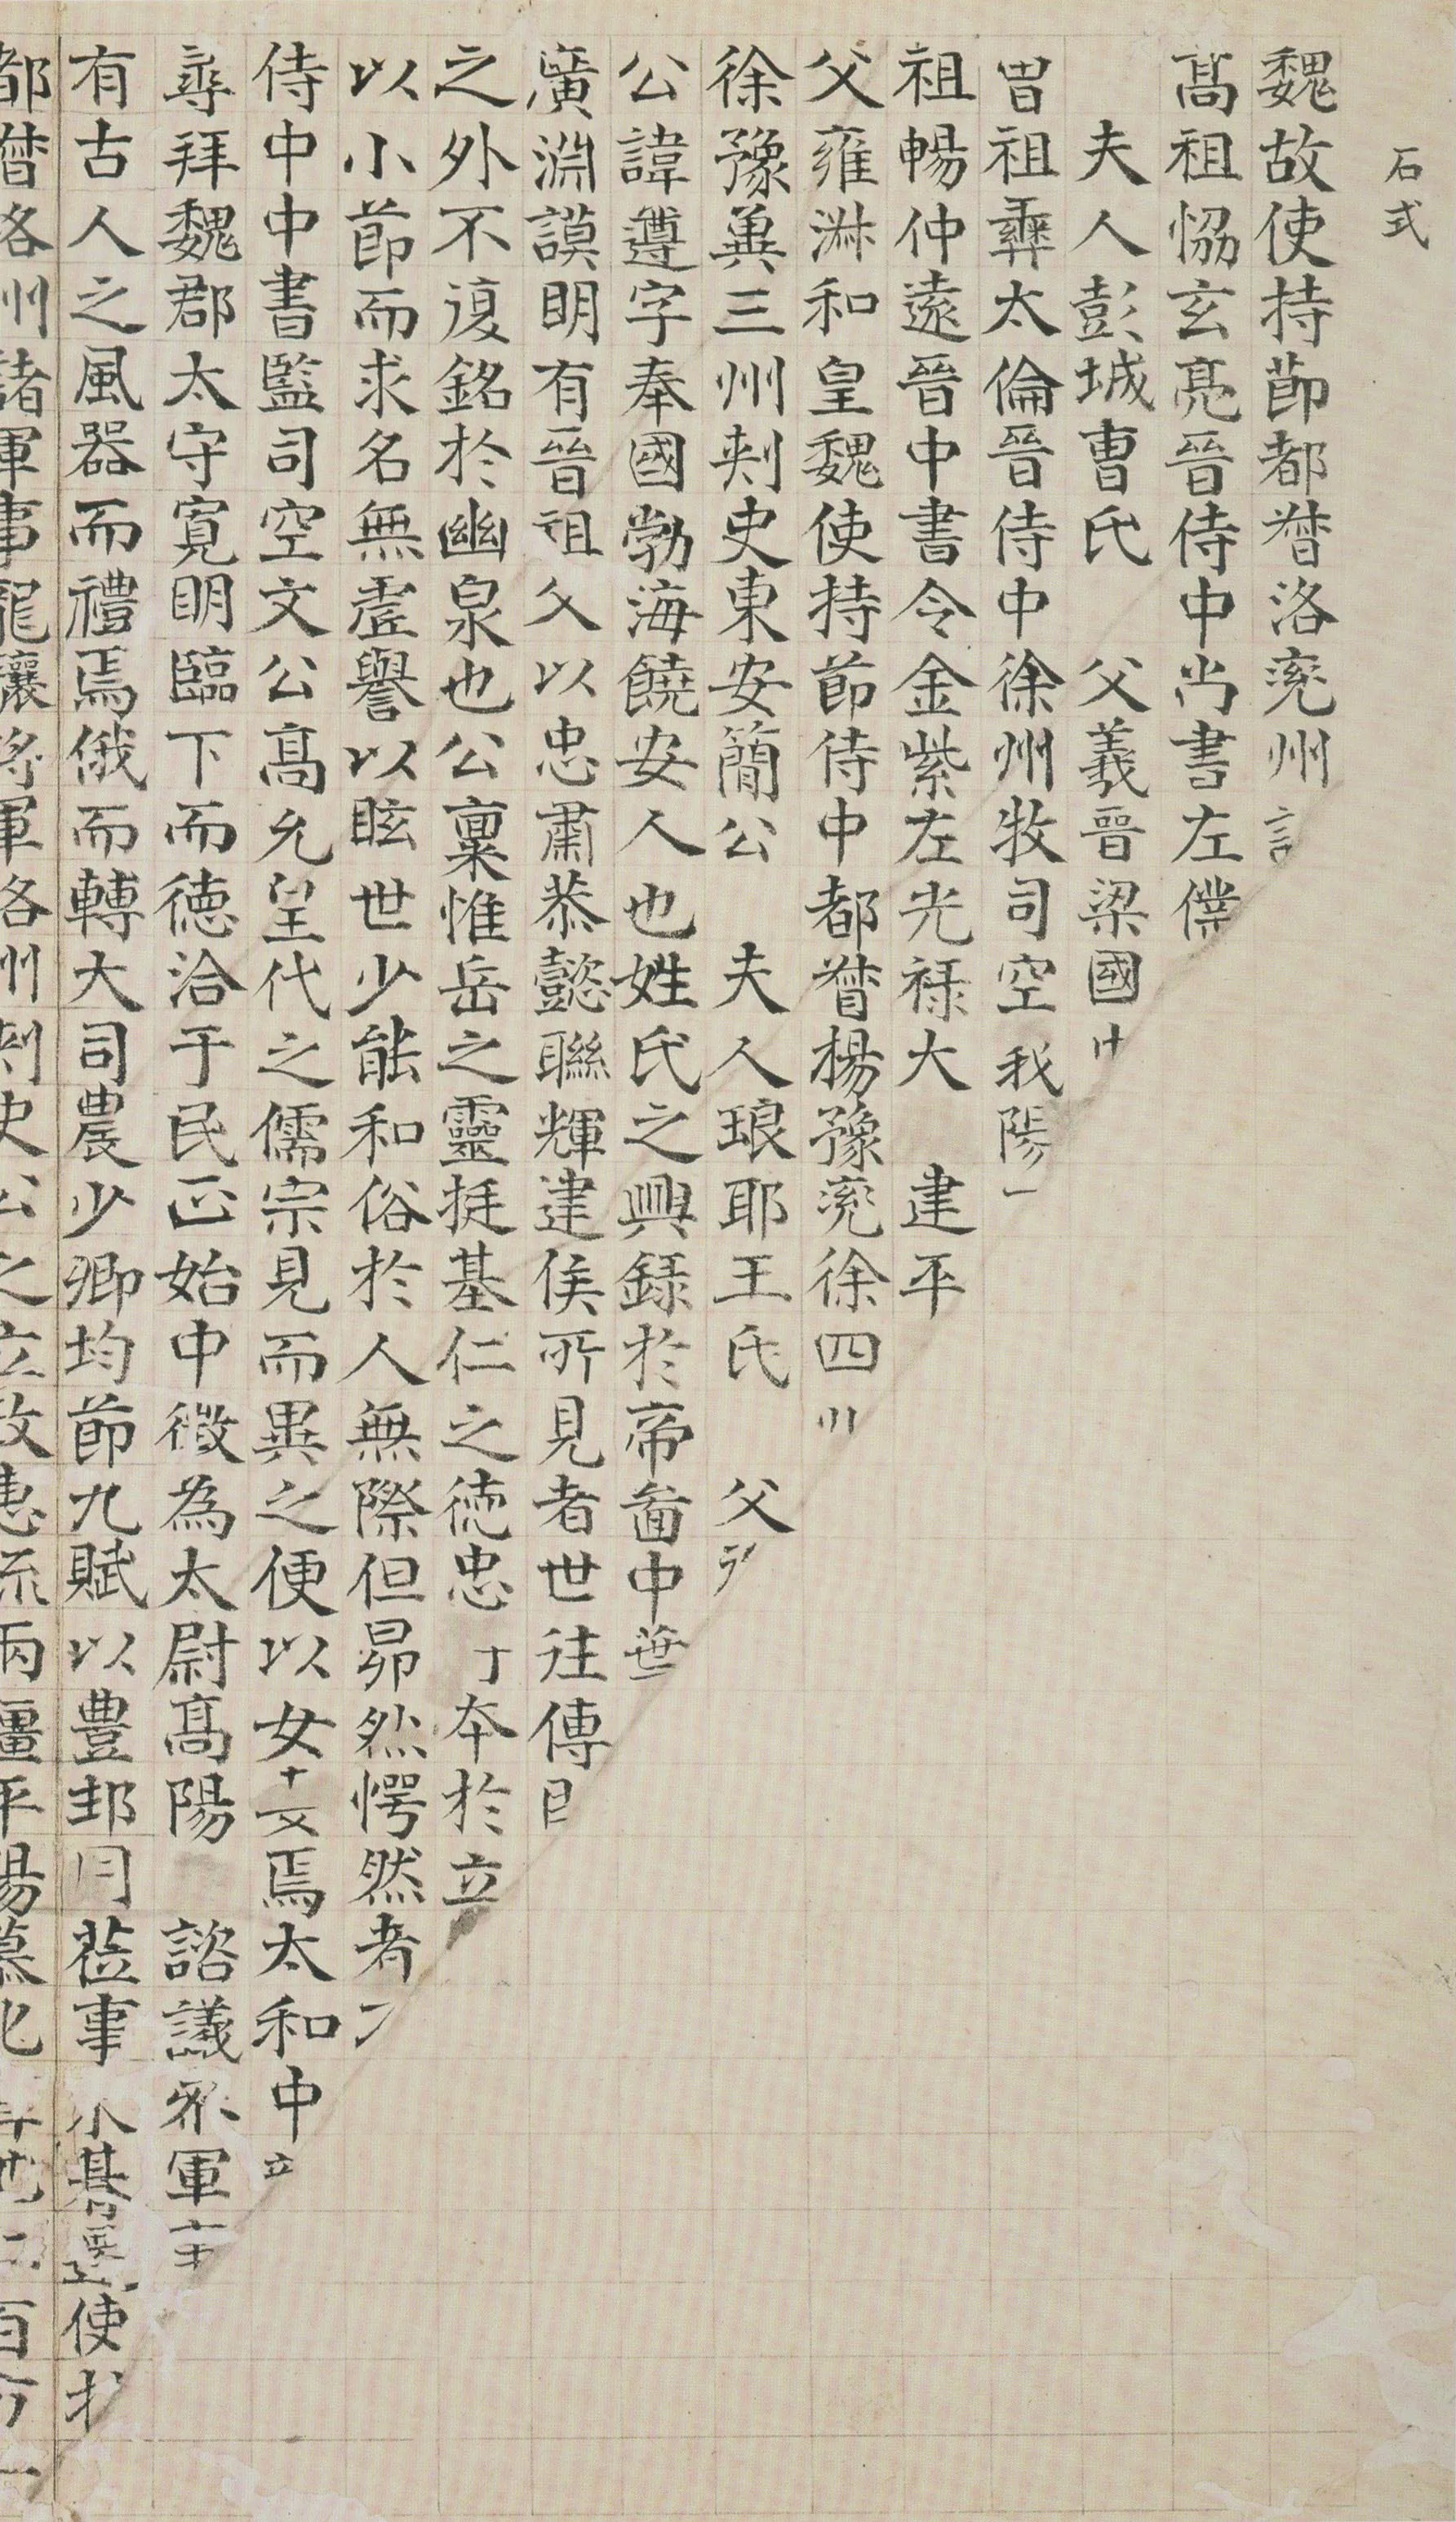 石式
魏故使持節都督洛兖州
髙祖恊玄亮晉侍中尚書左僕
夫人彭城曹氏 父義晉梁國
曾祖彝太倫晉侍中徐州牧司空
祖暢仲遠晉中書令金紫左光祿大 建平
父雍淋和皇魏使持節侍中都督楊豫兖徐四
徐豫兾三州刺史東安簡公 夫人琅耶王氏 父
公諱遵字奉國勃海饒安人也姓氏之興録於帝啚中葉
廣淵謨明有晉祖父以忠肅恭懿聯輝建侯所見者世往傳
之外不復銘於幽泉也公禀惟岳之靈挺基仁之徳忠 本於立
以小節而求名無虛譽以眩世少能和俗於人無際但昴然愕然者
侍中中書監司空文公髙允皇代之儒宗見而異之便以女 焉太和中
尋拜魏郡太守寬明臨下而徳洽于民正始中徵為太尉髙陽 諮議叅軍
有古人之風器而禮焉俄而轉大司農少卿均節九賦以豊邦 莅事 朞 使
都督洛州諸軍事龍驤將軍洛州刺史公之立政惠流兩疆平陽慕化 百